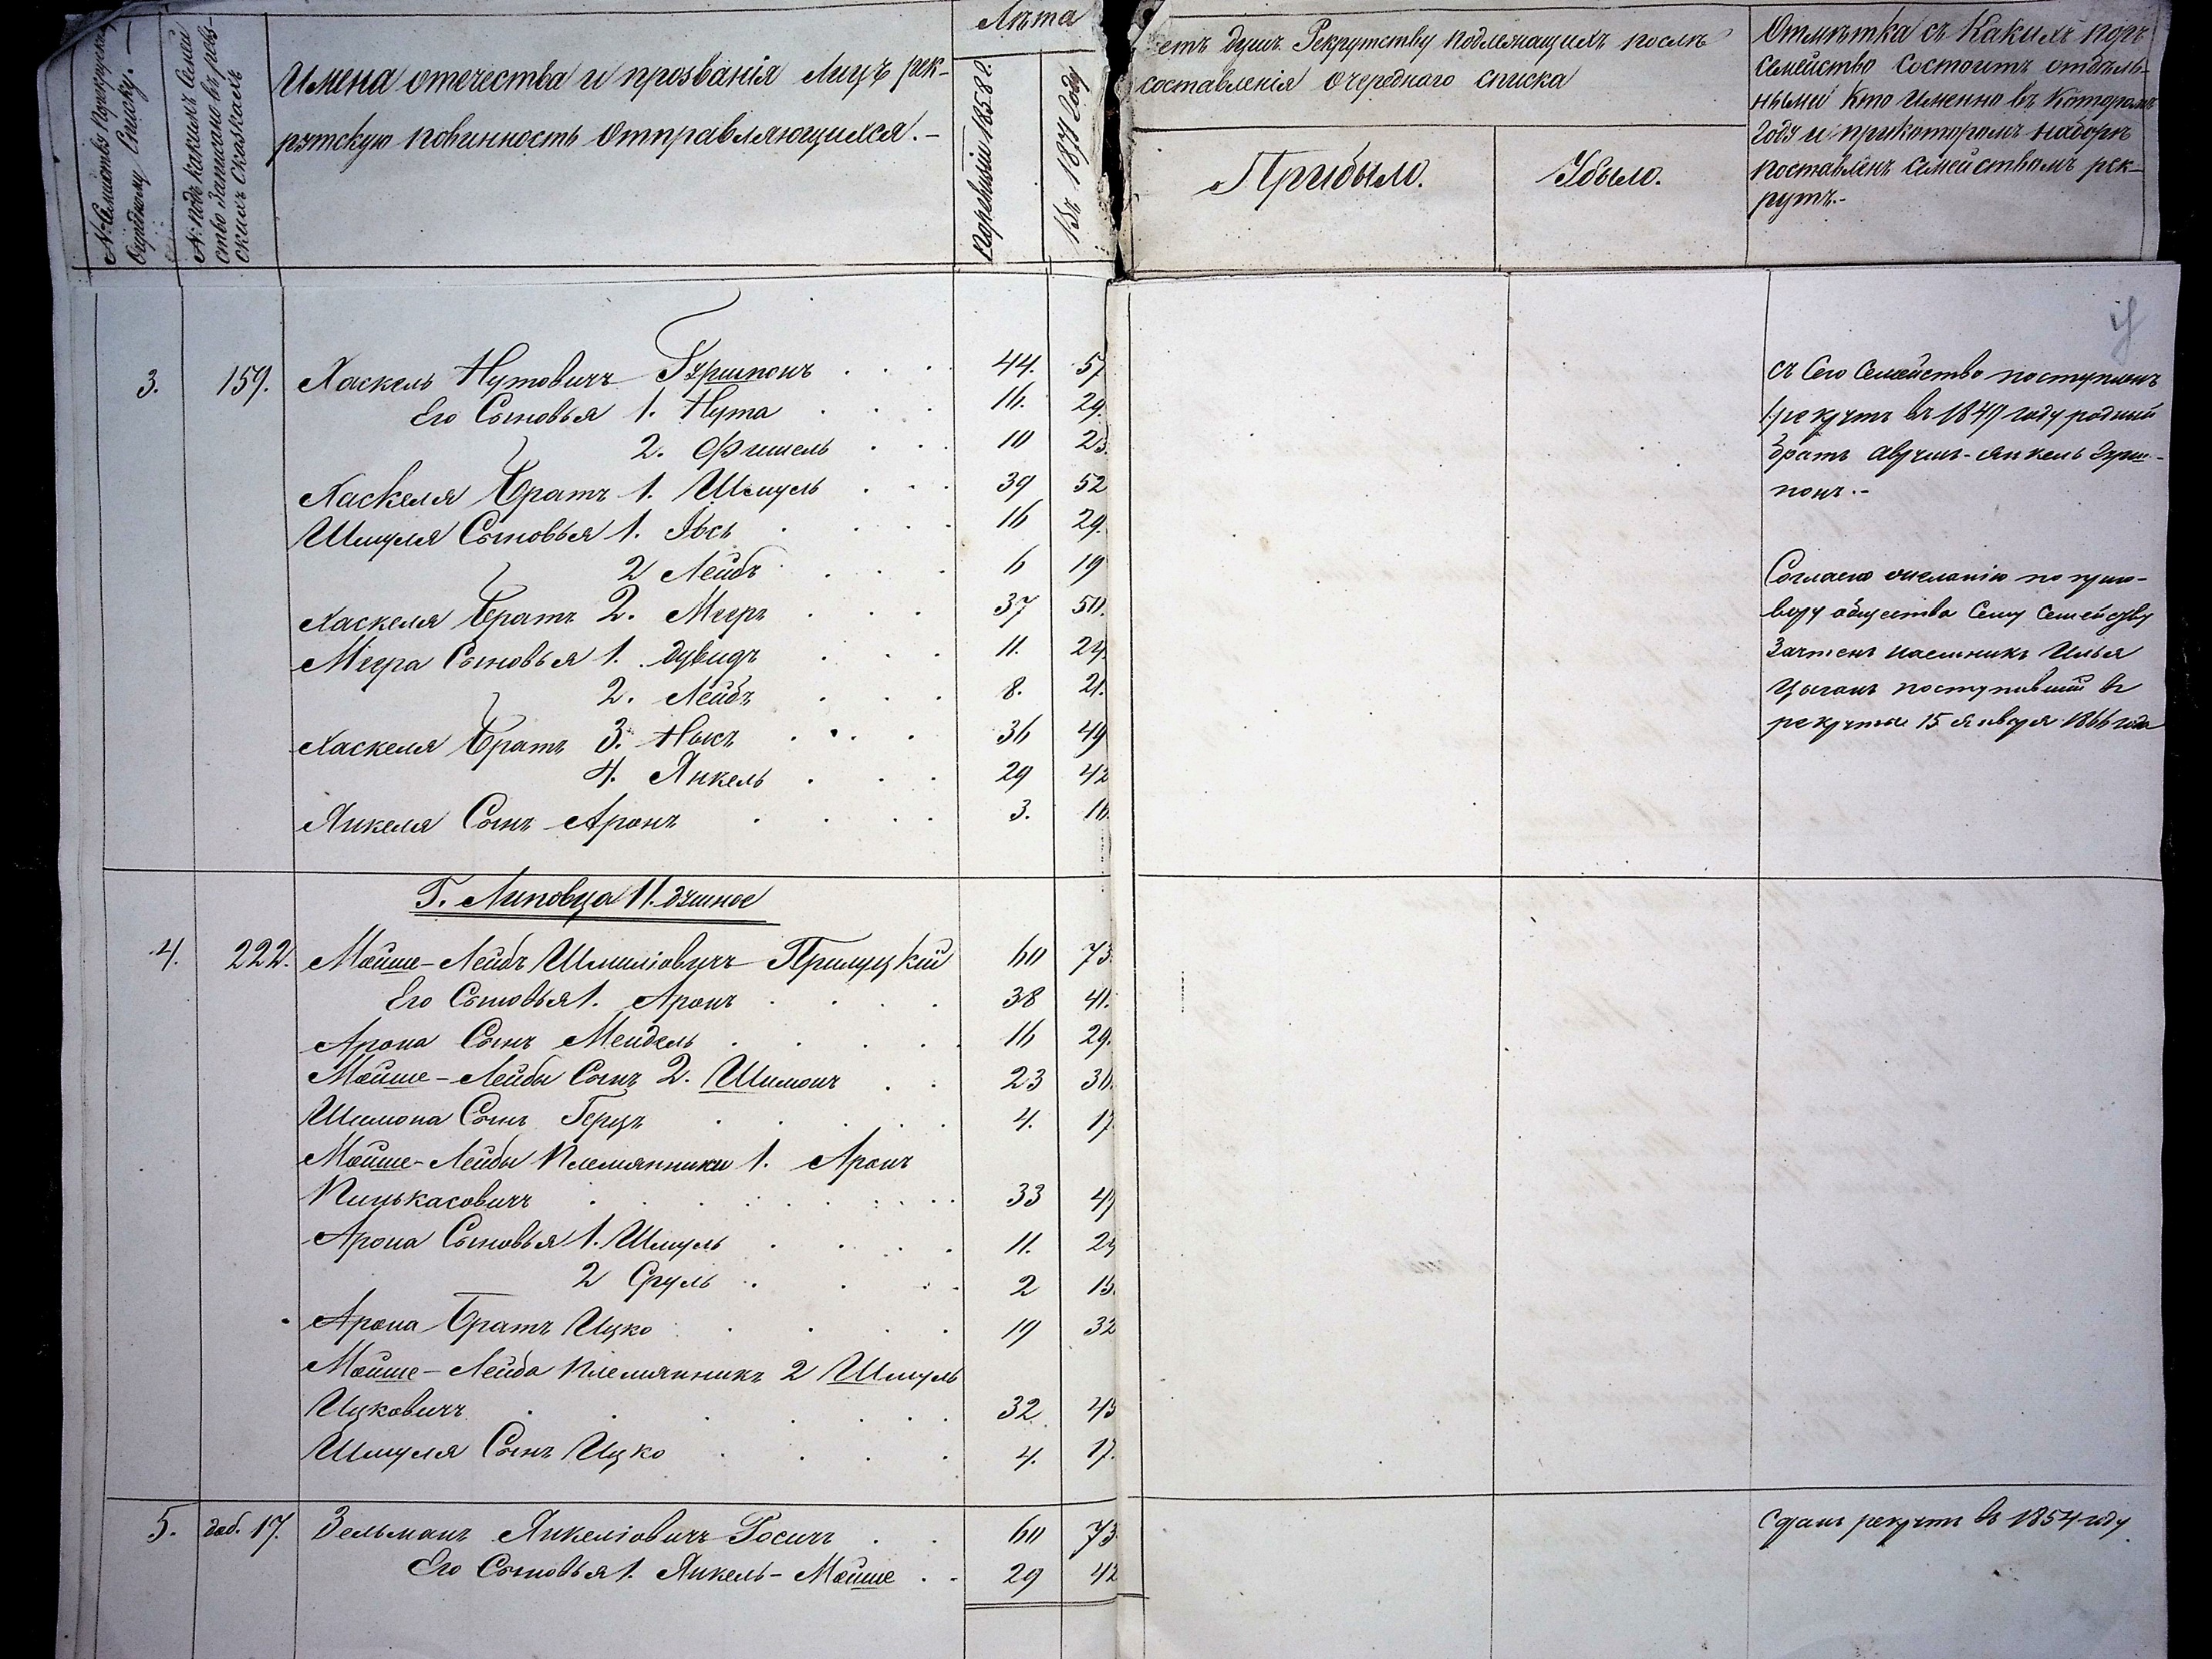 № Семейства по
Очередному Списку.
№ подъ какимъ Семей
ство записано въ реви-
скихъ Сказкахъ
Имена отечества и прозванія Лицъ рек-
рутскую повинность отправляющихся.-
Лѣта
По ревизіи 1858 г.
Въ 1871 году
етъ душъ Рекрутству подлежащихъ послѣ
составленія Очереднаго списка
Прибыло.
Убыло.
Отмѣтка съ Какихъ поръ
Семейство Состоитъ отдѣль-
нымъ Кто Именно въ Которомъ
году и прикоторомъ наборѣ
поставленъ Семействомъ рек-
рутъ.-
3. 159. Хаскель Нутовичъ . . . 44. 57
Его Сыновья 1. Нута . . . 16. 29.
2. Фишель . . . 10 23.
Хаскеля Братъ 1. Шмуль . . . 39 52
Шмуля Сыновья 1. Іось . . . 16 29.
2 Лейбъ . . . 6 19
Хаскеля Братъ 2. Мееръ . . . 37 50.
Меера Сыновья 1. Дувидъ . . . 11. 24.
2. Лейбъ . . . 8. 21.
Хаскеля Братъ 3. . . . 36 49
4. Янкель . . . 29 42
Янкеля Сынъ Аронъ . . . 3. 16.
съ Сего Семейства поступленъ
рекрутъ въ 1849 году родный
братъ Аврумъ-Янкель
понъ.-
Согласно желанію по приго-
вору общества Сему Семейству
Зачтенъ наемникъ Илья
Цыганъ поступившій въ
рекруты 15 Января 1866 года
Г. Липовца 11. душное
4. 222. Мойше-Лейбъ Шмиліовичъ Прилуцкій 60 73.
Его Сыновья 1. Аронъ . . . 38 41.
Арона Сынъ Мендель . . . 16 29.
Мойше-Лейбы Сынъ 2. Шимонъ . . 23 30.
Шимона Сынъ Герцъ . . . 4. 17
Мойше-Лейбы Племянники 1. Аронъ
Пинькасовичъ . . . 33 47
Арона Сыновья 1. Шмуль . . . 11. 24
2 Сруль . . . 2 15.
Арона Братъ Ицко . . . 19 32
Мойше-Лейба племянникъ 2 Шмуль
Ицковичъ . . . 32. 45
Шмуля Сынъ Ицко . . . 4. 17.
5. доб. 17. Зельманъ Янкеліовичъ Росичъ . . 60 73.
Его Сыновья 1. Янкель-Мойше . . 29 42
Сданъ рекрутъ въ 1854 году.